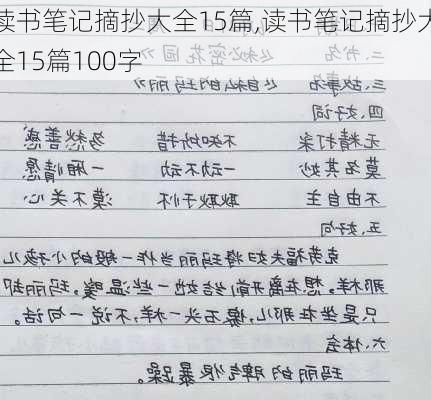 读书笔记摘抄大全15篇,读书笔记摘抄大
全15篇100字
二.书名
《秘密花园》
三.故事名
《自私的玛丽》
四.好词
无精打采 不知所措 多愁善感
莫名其妙 一动不动 一厢情愿
不由自主 耿耿于怀 漠不关心
五.好句
克劳福夫妇将玛丽当作一般的小孩儿
那样。想在离开前给她一些温暖。玛丽却
只是坐在那儿,像石头一样,不说一句话。
六.体会
玛丽的脾气很暴躁。